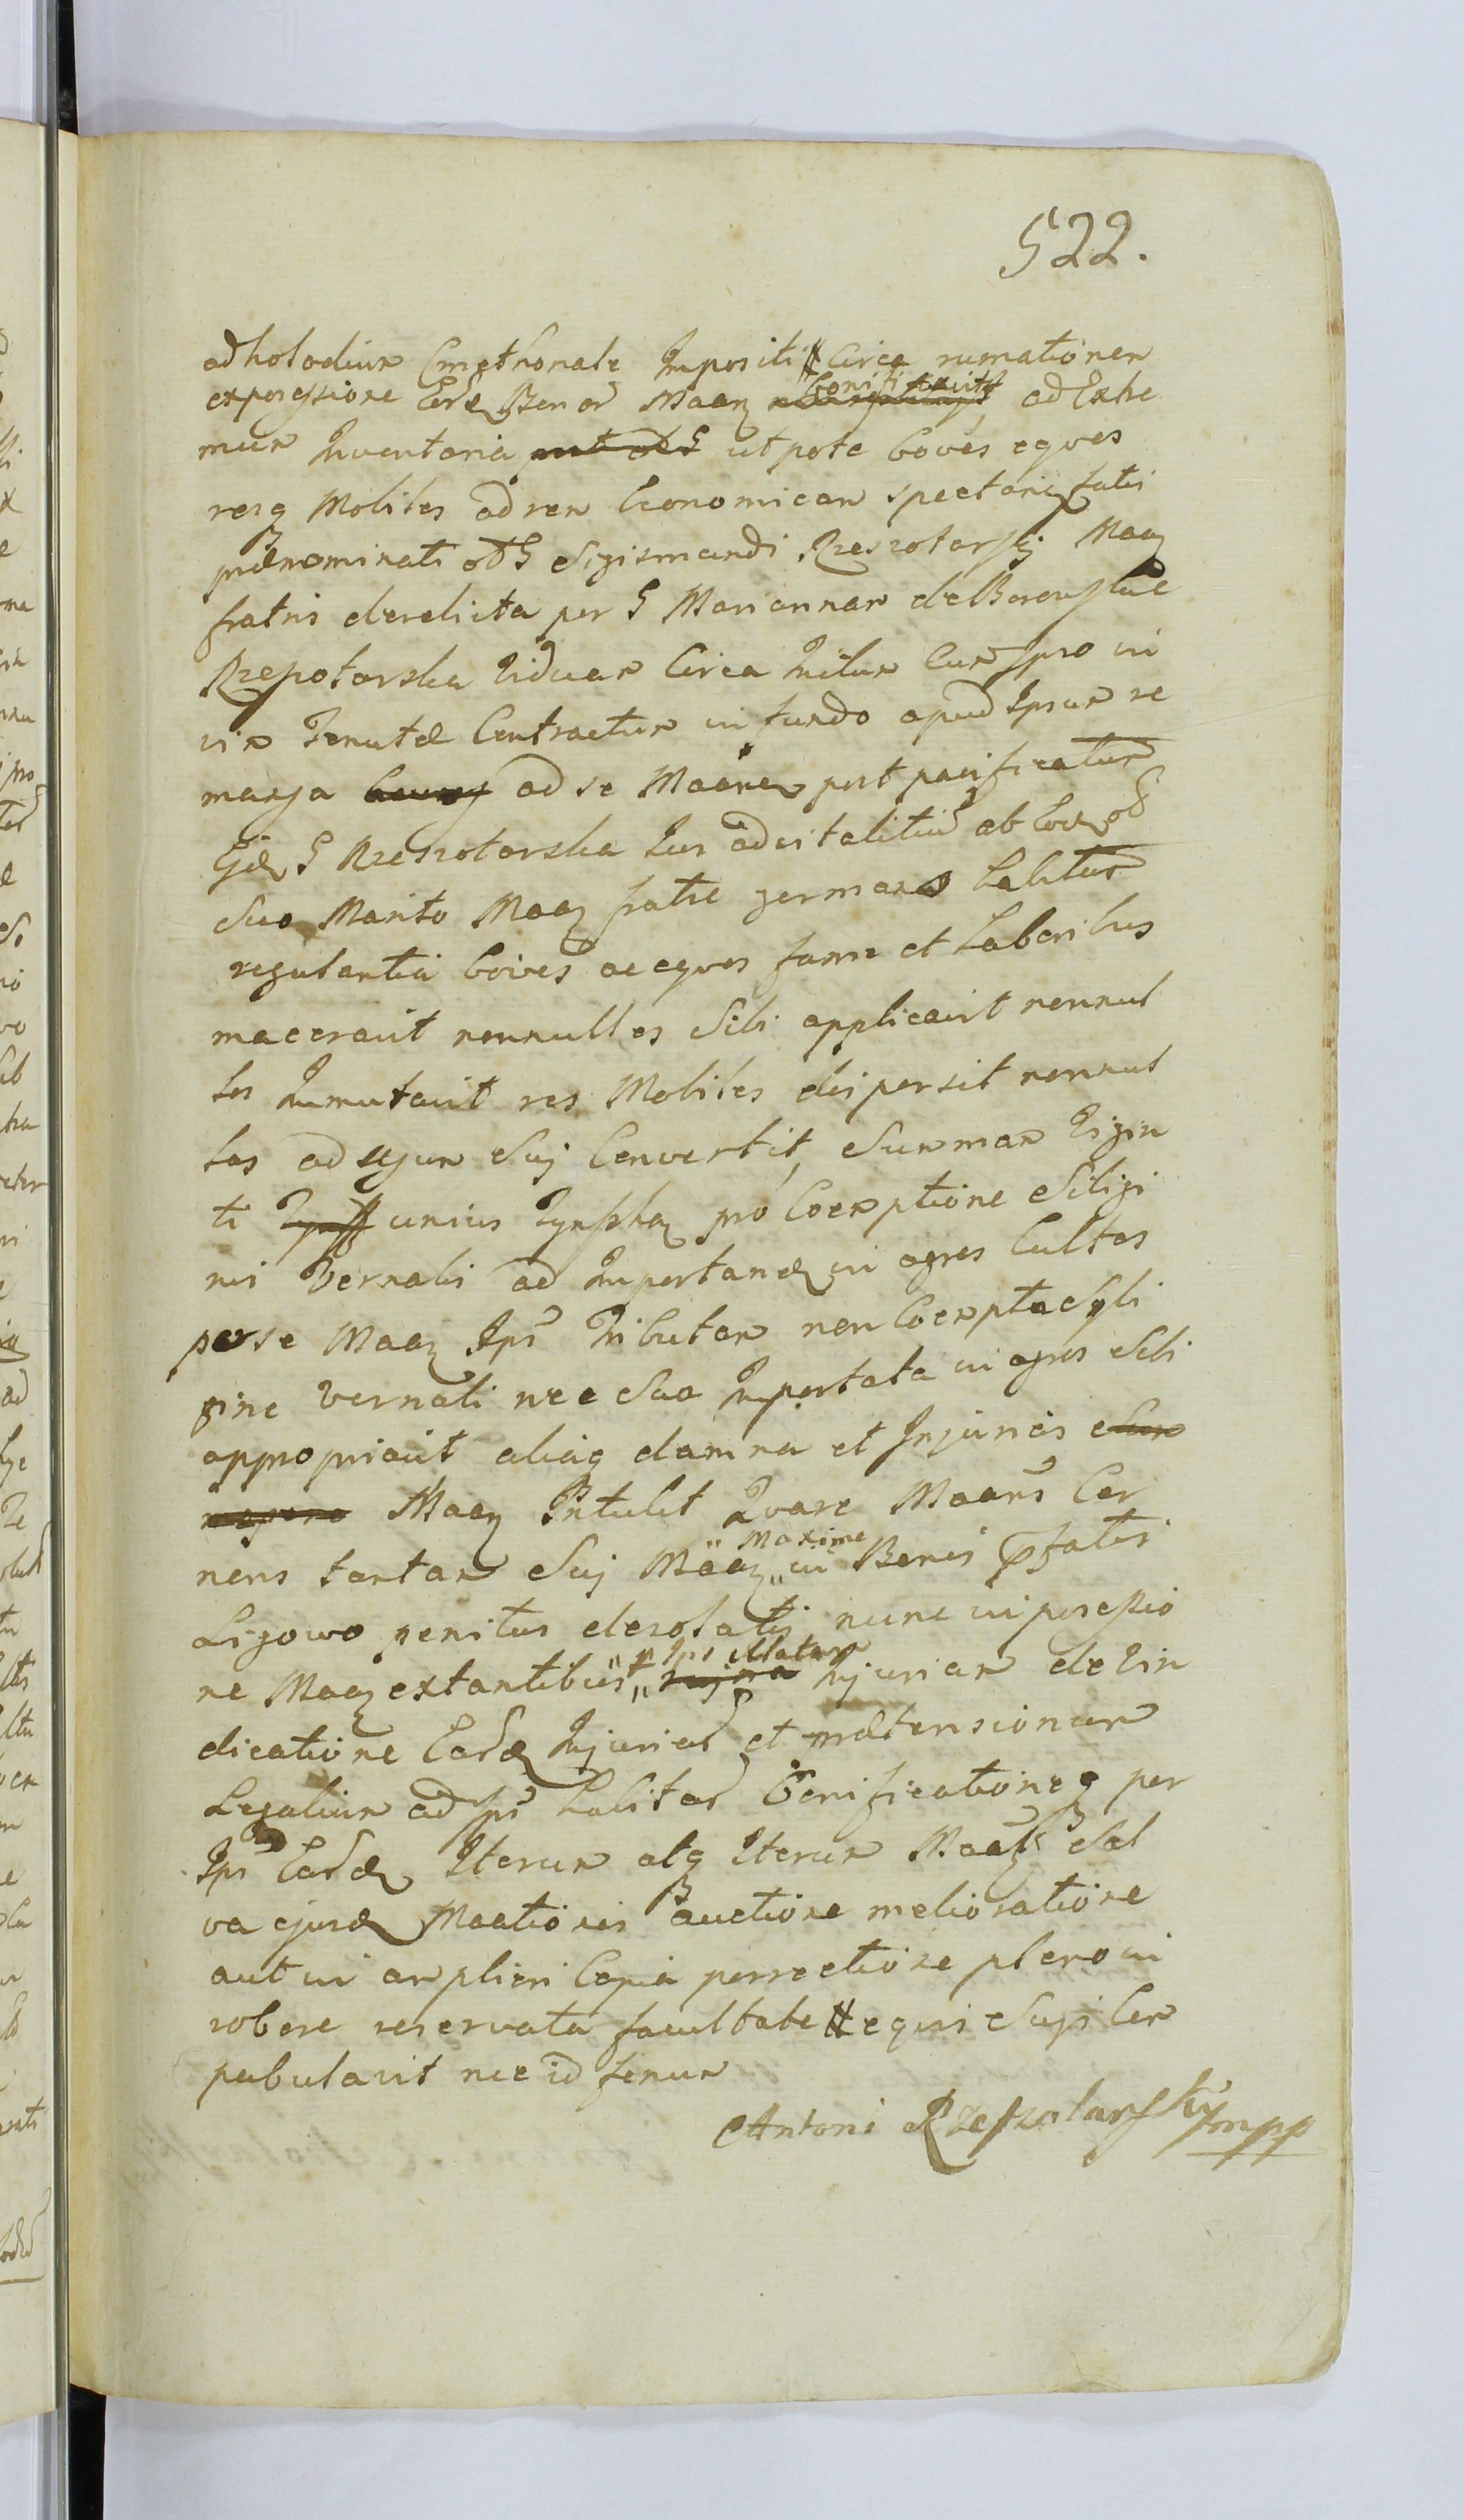 522.
ad holodium Cmethonale Impositi # Circa rumationem
expossessione Eorde Bonor Maan bonificavit ad Extre
mum Inventaria ut pote boves eqvos
resq Mobiles ad rem Economicam spectan fatis
prænominati olg Sigismundi Rzeszotarskj Maan
fratris derelicta per G Mariannam de Boronskie
Rzeszotarska Viduam Circa Initum Cum Ipso in
vim Tenutæ Contractum in fundo apud Ipsum re
mansa ad se Maanem post pacificatum
Ejde G Rzeszotarska Jus advitalitium ab eod
Suo Marito Maan fratre germano habitum
regulantia boves ac eqvos fame et Laboribus
maceravit nonnullos Sibi applicavit nonnul
los Immutavit res Mobiles dispersit nonnul
las ad usum Suj Convertit, Summam Vigin
ti unius Tynfhan pro Coemptione Siligi
nis Vernalis ad Importand in agros Cultos
per se Maan Ips Tributam non Coempta Syli
gine Vernali nec Sua Importata in agros Sibi
appropriavit aliaq damna et Injurias
Maan Intulit Qvare Maans Cer
nens tantam Suj Maan " Maxime in Bonis Pfatis
Ligowo penitus desolatis nunc in possessio
ne Maan extantibus " p Ips illatam Injuriam de Vin
dicatione Earde Injuriar et prætensionum
Legalium ad Ips habitar bonificationeq per
Ips Earde Iterum atq Iterum Maatr Sal
va ejusd Maationis auctione melioratione
aut in amplieri Copia porrectione pleno in
robore reservata facultate # eqvis Suis Com
pabulavit nec id fenum
Antoni Rzeszotarski mpp